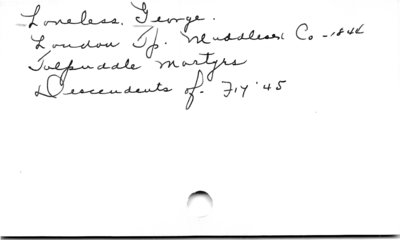 Loveless, George.
London Tp. Middlesex Co - 1844
Tolpuddle Martyrs
Descendents of - F.y '45